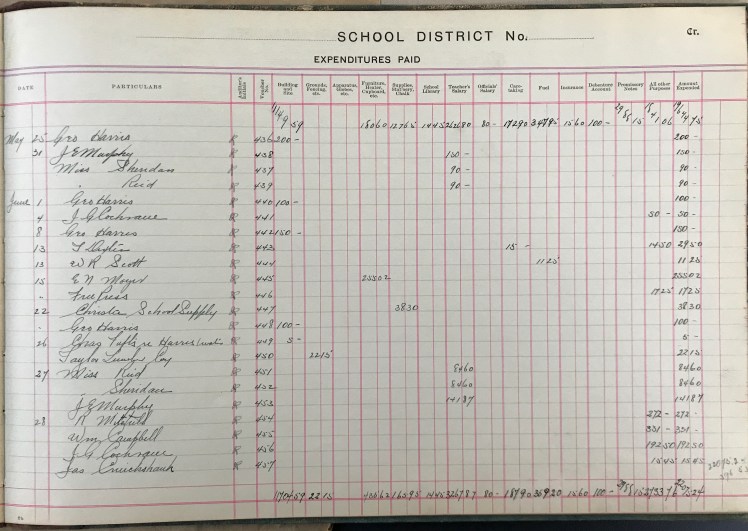 SCHOOL DISTRICT No.
Cr.
EXPENDITURES PAID
DATE PARTICULARS Auditor's Initials Voucher No. Building and Site Grounds, Fencing, etc. Apparatus, Globes, etc. Furniture, Heater, Cupboard, etc. Supplies, Stationery, Chalk School Library Teacher's Salary Officials' Salary Care-taking Fuel Insurance Debenture Account Promissory Notes All other Purposes Amount Expended
59 180 60 127 65 14 45 80 - 172 90 347 95 15 60 100 - 15
May 25 Geo Harris R 436 200 - 200 -
31 J E Murphy R 438 150 - 150 -
Miss Sheridan R 437 90 - 90 -
" Reid R 439 90 - 90 -
June 1 Geo Harris R 440 100 - 100 -
4 J G Cochrane R 441 50 - 50 -
8 Geo Harris R 442 150 - 150 -
13 R 443 15 - 14 50 29 50
13 W R Scott R 444 11 25 11 25
15 E N Moyer R 445 255 02 255 02
" Free Press R 446 17 25 17 25
22 Christie School Supply R 447 38 30 38 30
" Geo Harris R 448 100 - 100 -
26 Tufts re Harris R 449 5 - 5 -
Taylor Lumber Coy R 450 22 15 22 15
27 Miss Reid R 451 84 60 84 60
Sheridan R 452 84 60 84 60
J E Murphy R 453 141 87 141 87
28 R R 454 272 - 272 -
Wm Campbell R 455 331 - 331 -
J G Cochrane R 456 192 50 192 50
Jas Cruickshank R 457 15 45 15 45
1704 59 22 15 165 95 14 45 80 - 187 90 359 20 15 60 100 - 15